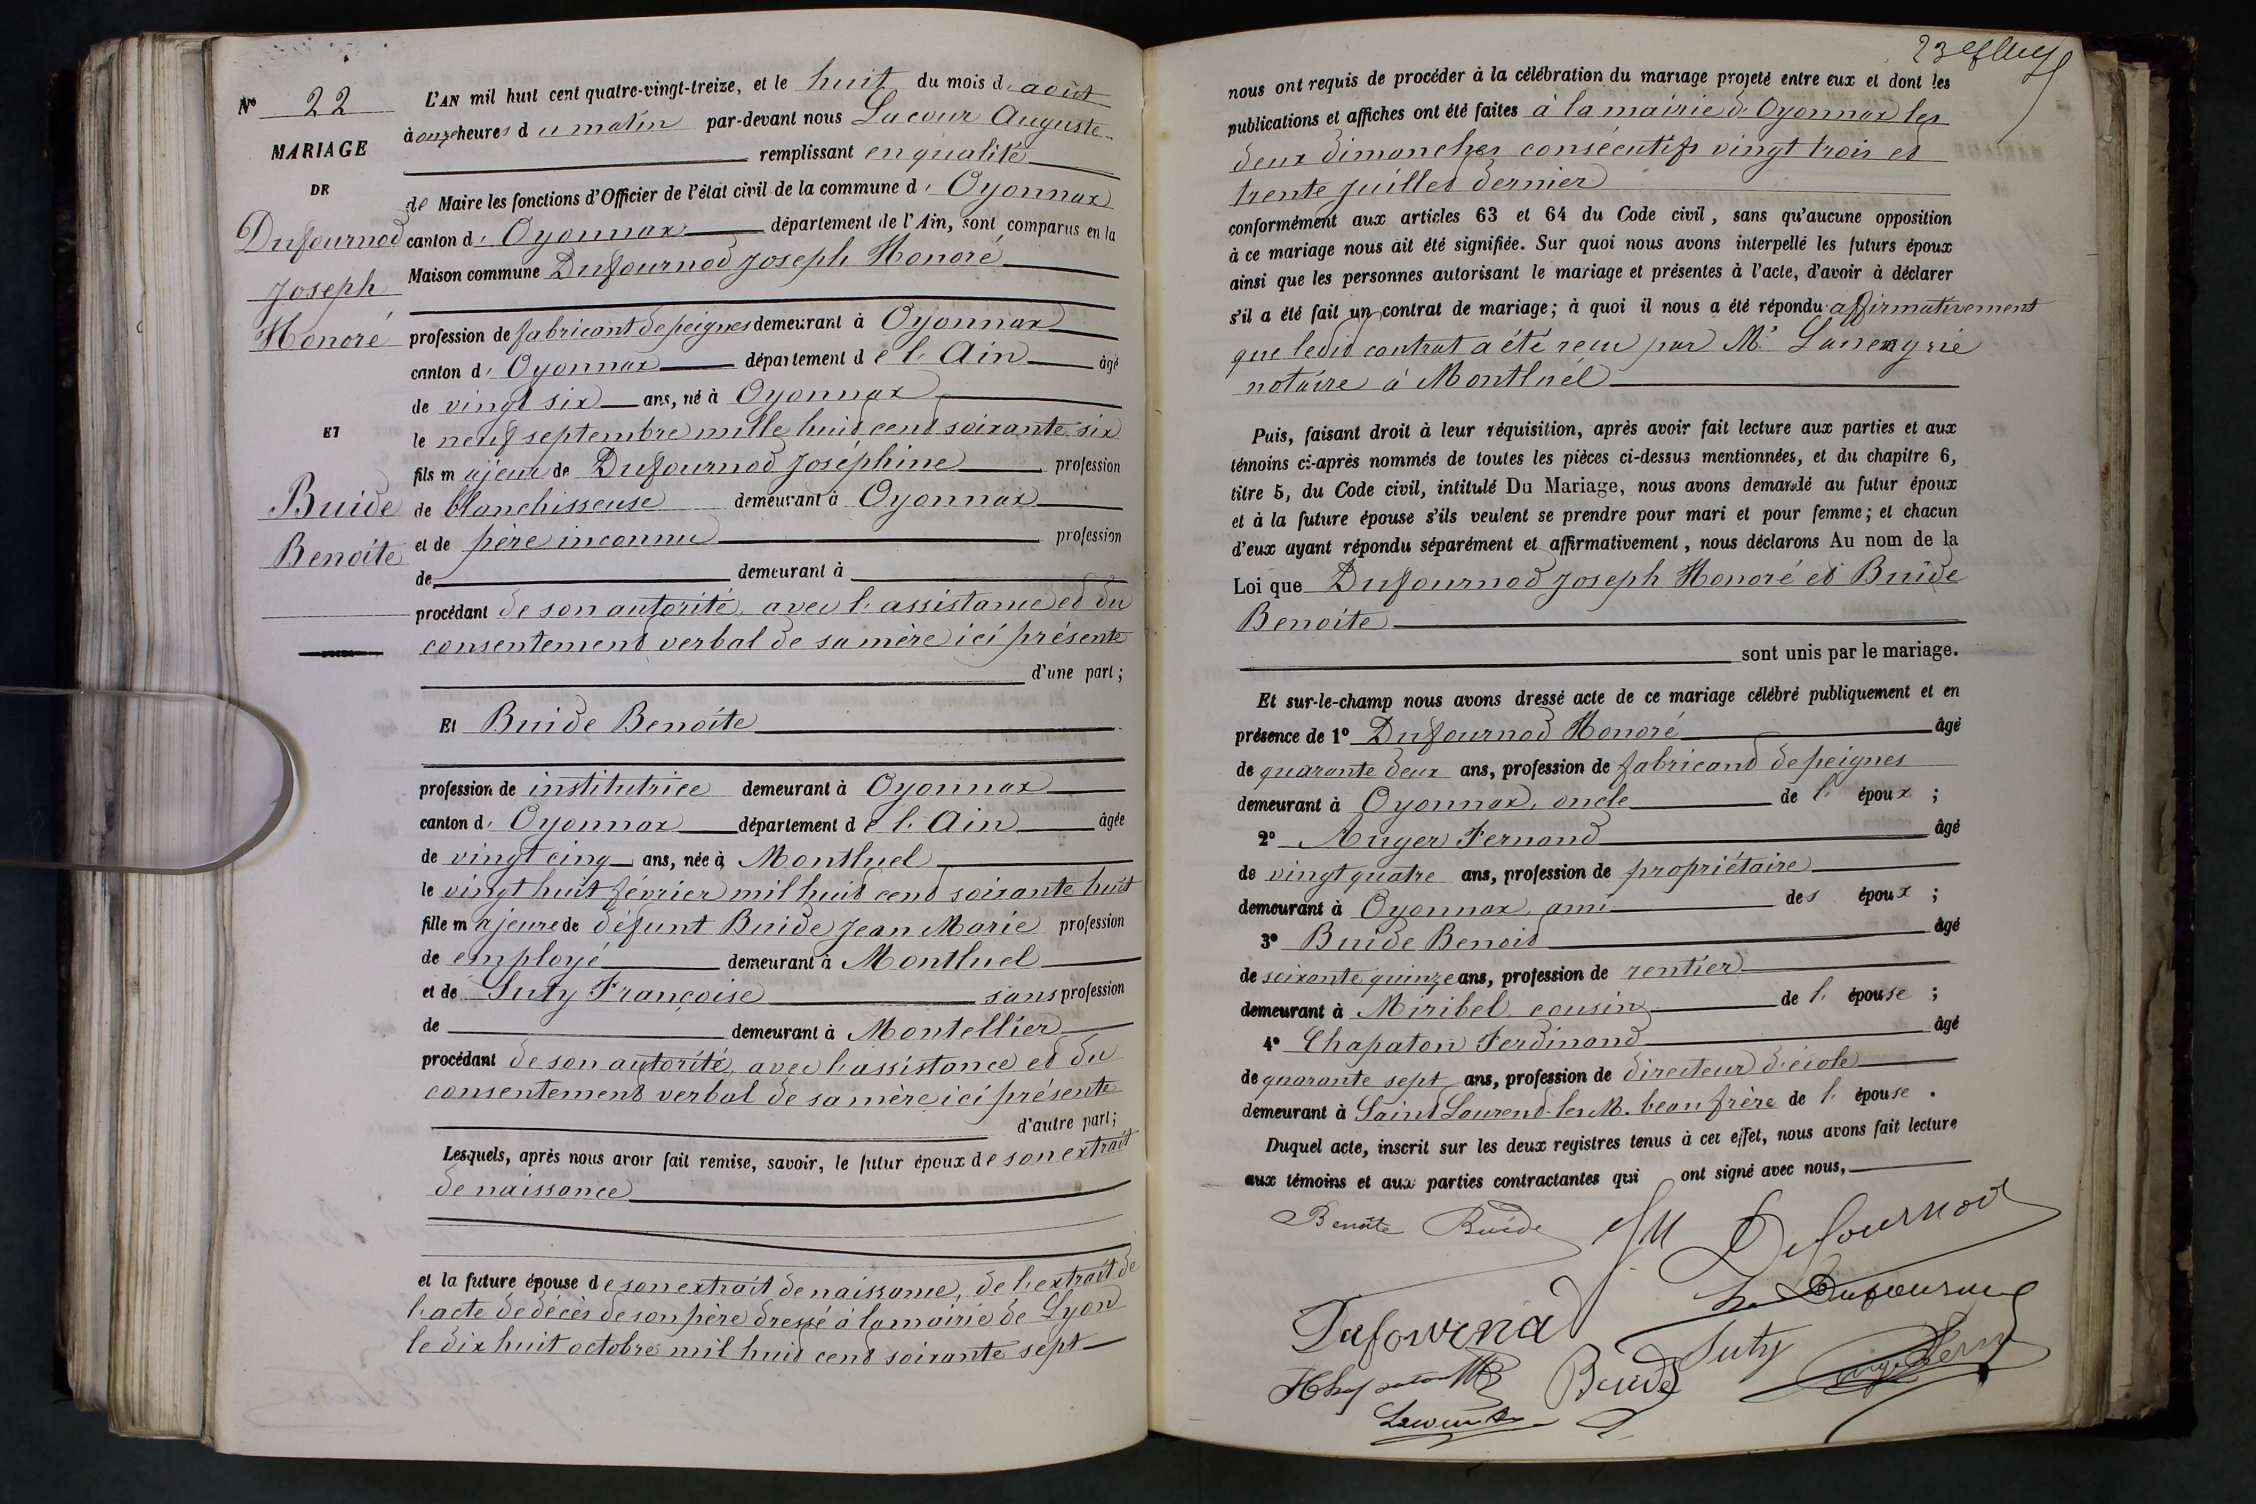 N° 22
MARIAGE
DE
Dufournod
Joseph
Honoré
ET
Buide
Benoite
L'AN mil huit cent quatre-vingt-treize, et le huit du mois d'août
à onze heures du matin par-devant nous Lacour Auguste
remplissant en qualité
de Maire les fonctions d'Officier de l'état civil de la commune d'Oyonnax
canton d'Oyonnax département de l'Ain, sont comparus en la
Maison commune Dufournod Joseph Honoré
profession de fabricant de peignes demeurant à Oyonnax
canton d'Oyonnax département de l'Ain âgé
de vingt six ans, né à Oyonnax
le neuf septembre mille huit cent soixante six
fils majeur de Dufournod Joséphine profession
de blanchisseuse demeurant à Oyonnax
et de père inconnu profession
de demeurant à
procédant de son autorité, avec l'assistance et du
consentement verbal de sa mère ici présente
d'une part;
Et Buide Benoite
profession de institutrice demeurant à Oyonnax
canton d'Oyonnax département de l'Ain âgée
de vingt cinq ans, née à Montluel
le vingt huit février mil huit cent soixante huit
fille majeure de défunt Buide Jean Marie profession
de employé demeurant à Montluel
et de Suty Françoise sans profession
de demeurant à Montellier
procédant de son autorité, avec l'assistance et du
consentement verbal de sa mère ici présente
d'autre part;
Lesquels, après nous avoir fait remise, savoir, le futur époux de son extrait
de naissance
et la future épouse de son extrait de naissance, de l'extrait de
l'acte de décès de son père dressé à la mairie de Lyon
le dix huit octobre mil huit cent soixante sept
23
nous ont requis de procéder à la célébration du mariage projeté entre eux et dont les
publications et affiches ont été faites à la mairie d'Oyonnax les
deux dimanches consécutifs vingt trois et
trente juillet dernier
conformément aux articles 63 et 64 du Code civil, sans qu'aucune opposition
à ce mariage nous ait été signifiée. Sur quoi nous avons interpellé les futurs époux
ainsi que les personnes autorisant le mariage et présentes à l'acte, d'avoir à déclarer
s'il a été fait un contrat de mariage; à quoi il nous a été répondu affirmativement
que ledit contrat a été reçu par Me
notaire à Montluel
Puis, faisant droit à leur réquisition, après avoir fait lecture aux parties et aux
témoins ci-après nommés de toutes les pièces ci-dessus mentionnées, et du chapitre 6,
titre 5, du Code civil, intitulé Du Mariage, nous avons demandé au futur époux
et à la future épouse s'ils veulent se prendre pour mari et pour femme; et chacun
d'eux ayant répondu séparément et affirmativement, nous déclarons Au nom de la
Loi que Dufournod Joseph Honoré et Buide
Benoite
sont unis par le mariage.
Et sur-le-champ nous avons dressé acte de ce mariage célébré publiquement et en
présence de 1° Dufournod Honoré âgé
de quarante deux ans, profession de fabricant de peignes
demeurant à Oyonnax, oncle de l'époux;
2° Auger Fernand âgé
de vingt quatre ans, profession de propriétaire
demeurant à Oyonnax, ami des époux;
3° Buide Benoit âgé
de soixante quinze ans, profession de rentier
demeurant à Miribel, cousin de l'épouse;
4° Chapaton Ferdinand âgé
de quarante sept ans, profession de directeur d'école
demeurant à Saint Laurent les M. beau frère de l'épouse.
Duquel acte, inscrit sur les deux registres tenus à cet effet, nous avons fait lecture
aux témoins et aux parties contractantes qui ont signé avec nous,
Benoite Buide Dufournod
Dufournod
Suty
Buide